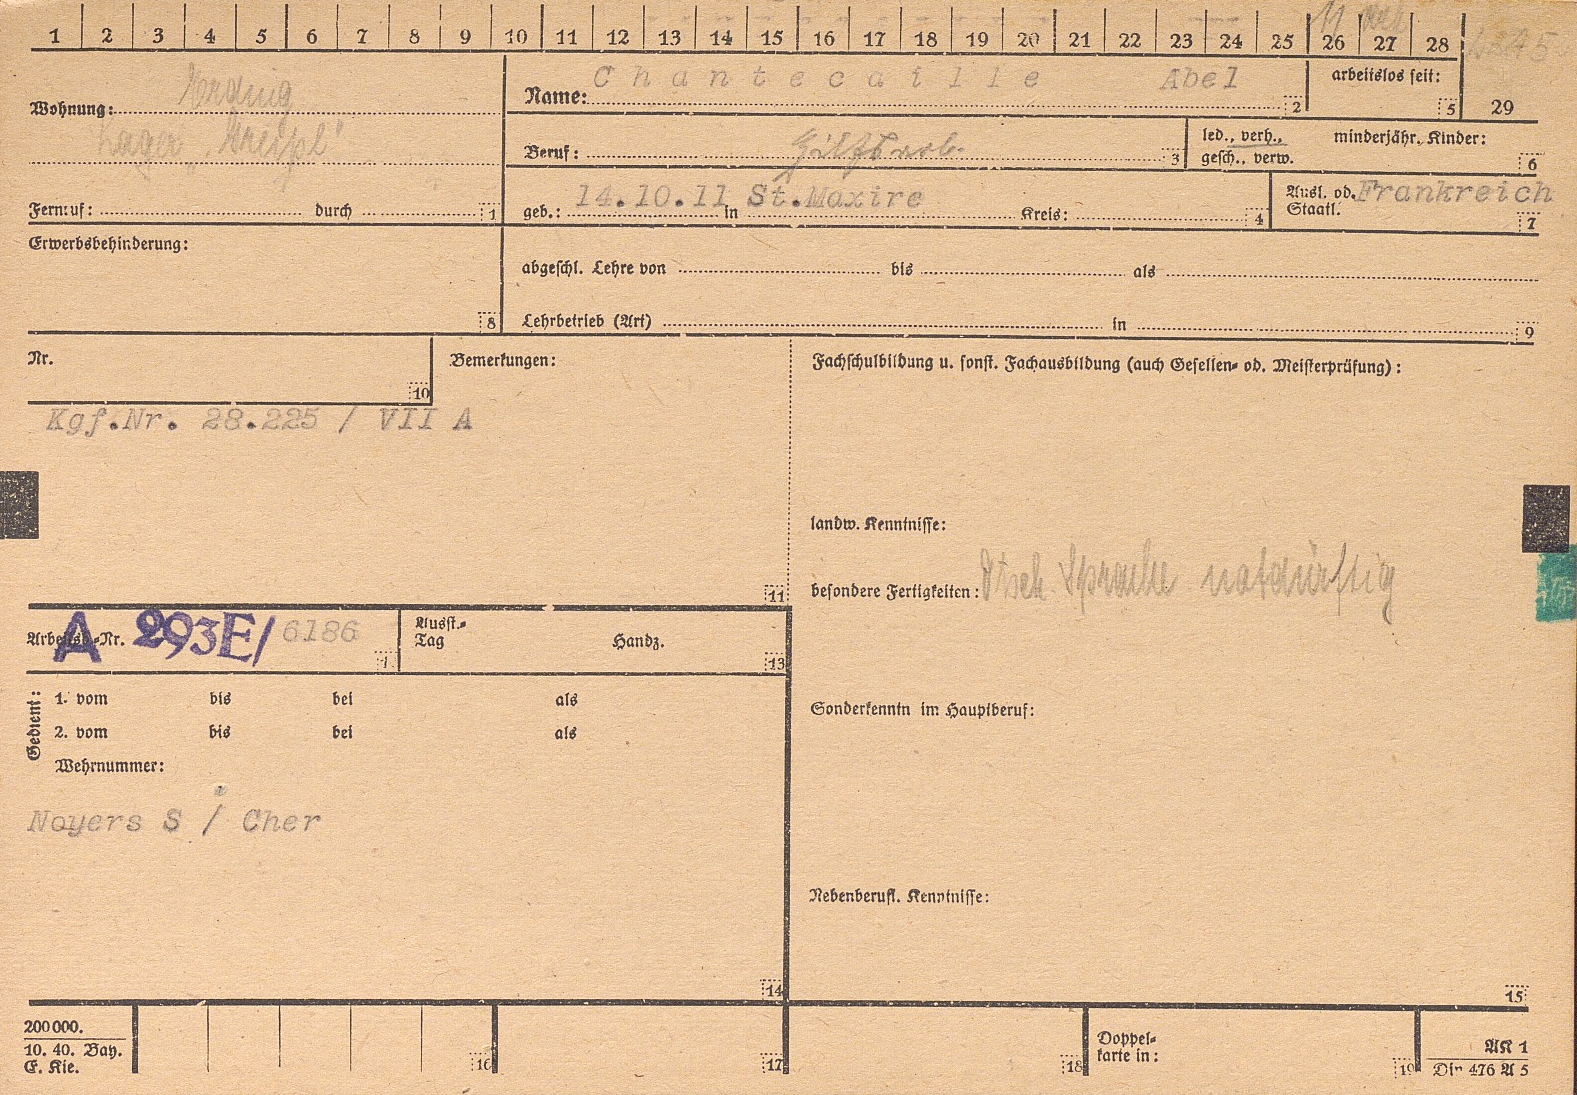 1 2 3 4 5 6 7 8 9 10 11 12 13 14 15 16 17 18 19 20 21 22 23 24 25 26 27 28
Wohnung: Erding
Lager
Name: Chantecaille Abel 2
arbeitslos seit: 5
29
Beruf: Hilfsarb. 3
led., verh.,
gesch., verw.
minderjähr. Kinder: 6
Fernruf: durch 1
geb.: 14.10.11 in St.Maxire Kreis: 4
Ausl. od. Frankreich
Staatl. 7
Erwerbsbehinderung: 8
abgeschl. Lehre von bis als
Lehrbetrieb (Art) in 9
Nr. 10
Bemerkungen:
Kgf.Nr. 28.225 / VII A
11
Fachschulbildung u. sonst. Fachausbildung (auch Gesellen- od. Meisterprüfung):
landw. Kenntnisse:
besondere Fertigkeiten: Dtsch Sprache notdürftig
Sonderkenntn im Hauptberuf:
Nebenberufl. Kenntnisse:
15
Arbeitsb.-Nr. A 293E/ 6186
Ausst.-
Tag Handz. 13
Gedient:
1. vom bis bei als
2. vom bis bei als
Wehrnummer:
Noyers S / Cher
14
200000.
10. 40. Bay.
E. Kie.
16 17 18
Doppel-
karte in: 19
AK 1
Din 476 A 5